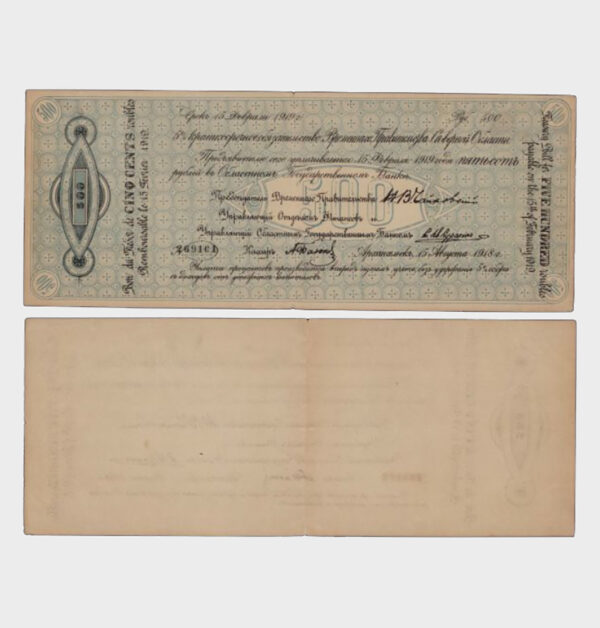 500
Срокъ 15 Февраля 1919 г.
Руб. 500
5% Краткосрочное обязательство Временнаго Правительства Северной Области
Предъявителю сего уплачивается 15 Февраля 1919 года пятьсотъ
рублей въ Областномъ Государственномъ Банкѣ.
500
Председатель Временнаго Правительства
Управляющій Отделомъ Финансовъ
Управляющій Областнымъ Государственнымъ Банкомъ
269161
Кассиръ
Архангельскъ, 15 Августа 1918 г.
Bon du Trésor de CINQ CENTS roubles
Remboursable le 15 Février 1919.
500
Treasury Bill to FIVE HUNDRED roubles
payable on the 15th of February 1919